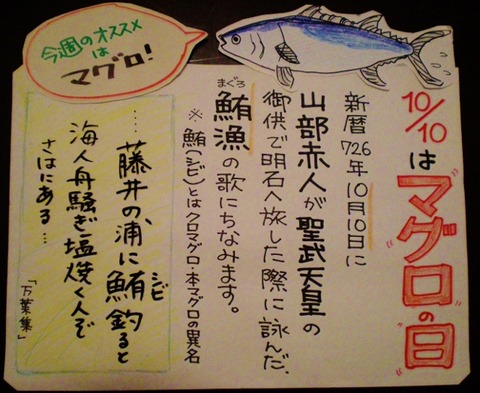 今週のオススメ
は
マグロ!
10/10は"マグロ"の"日"
新暦726年10月10日に
山部赤人が聖武天皇の
御供で明石へ旅した際に詠んだ、
まぐろ
鮪漁の歌にちなみます。
※鮪(シビ)とはクロマグロ・本マグロの異名
……藤井の浦に鮪釣ると
シビ
海人舟騒ぎ塩焼く人ぞ
さはにある…
「万葉集」